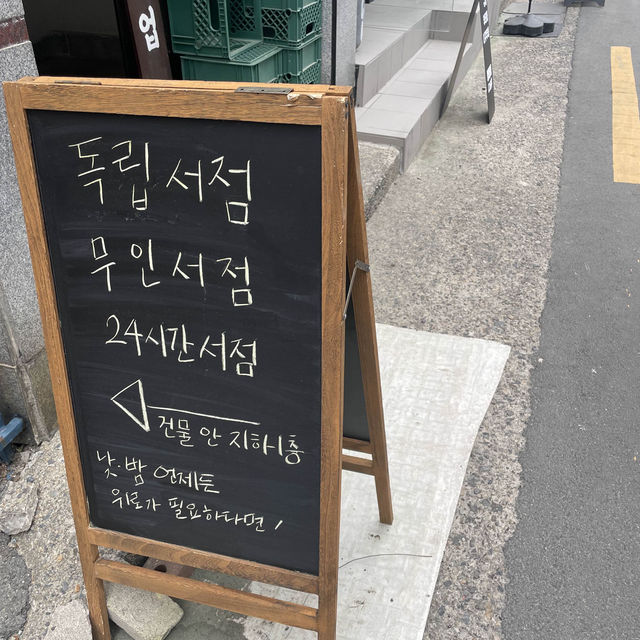 업
독립 서점
무인 서점
24시간 서점
건물 안 지하1층
낮·밤 언제든
위로가 필요하다면 /